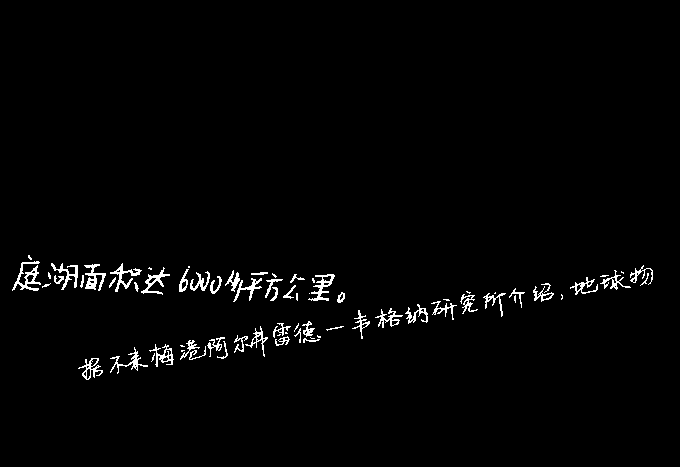 庭湖面积达6000多平方公里。
据不来梅港阿尔弗雷德一韦格纳研究所介绍,地球物